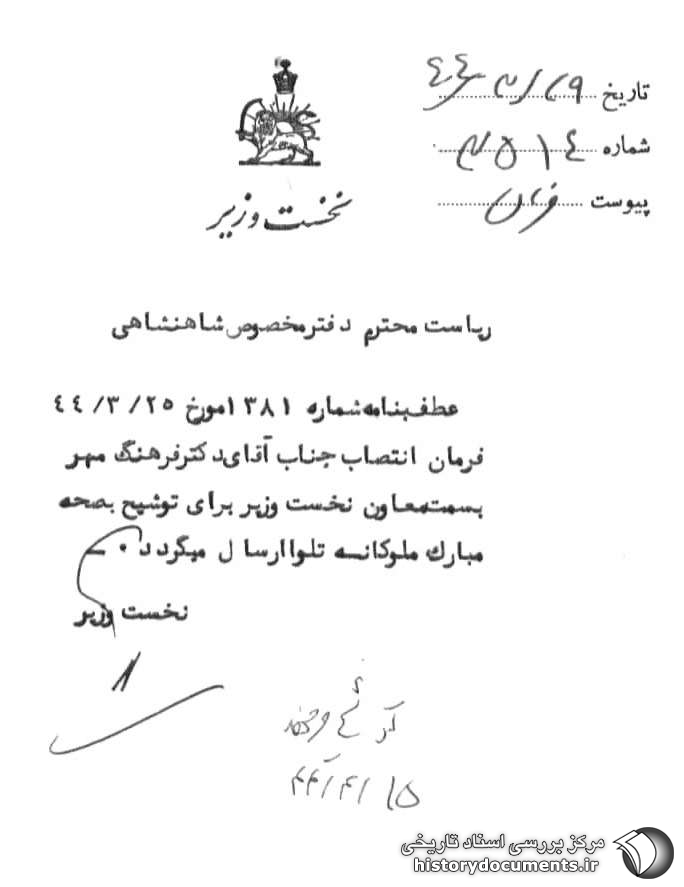 تاریخ ۴۴/۳/۲۹
شماره ۳۵۱۴
پیوست فرمان
نخست وزیر
ریاست محترم دفتر مخصوص شاهنشاهی
عطف بنامه شماره ۱۳۸۱ مورخ ۴۴/۳/۲۵
فرمان انتصاب جناب آقای دکتر فرهنگ مهر
بسمت معاون نخست وزیر برای توشیح بصحه
مبارک ملوکانه تلوا ارسال میگردد ۰ ـ
نخست وزیر
۴۴/۴/۱۵
مرکز بررسی اسناد تاریخی
historydocuments.ir